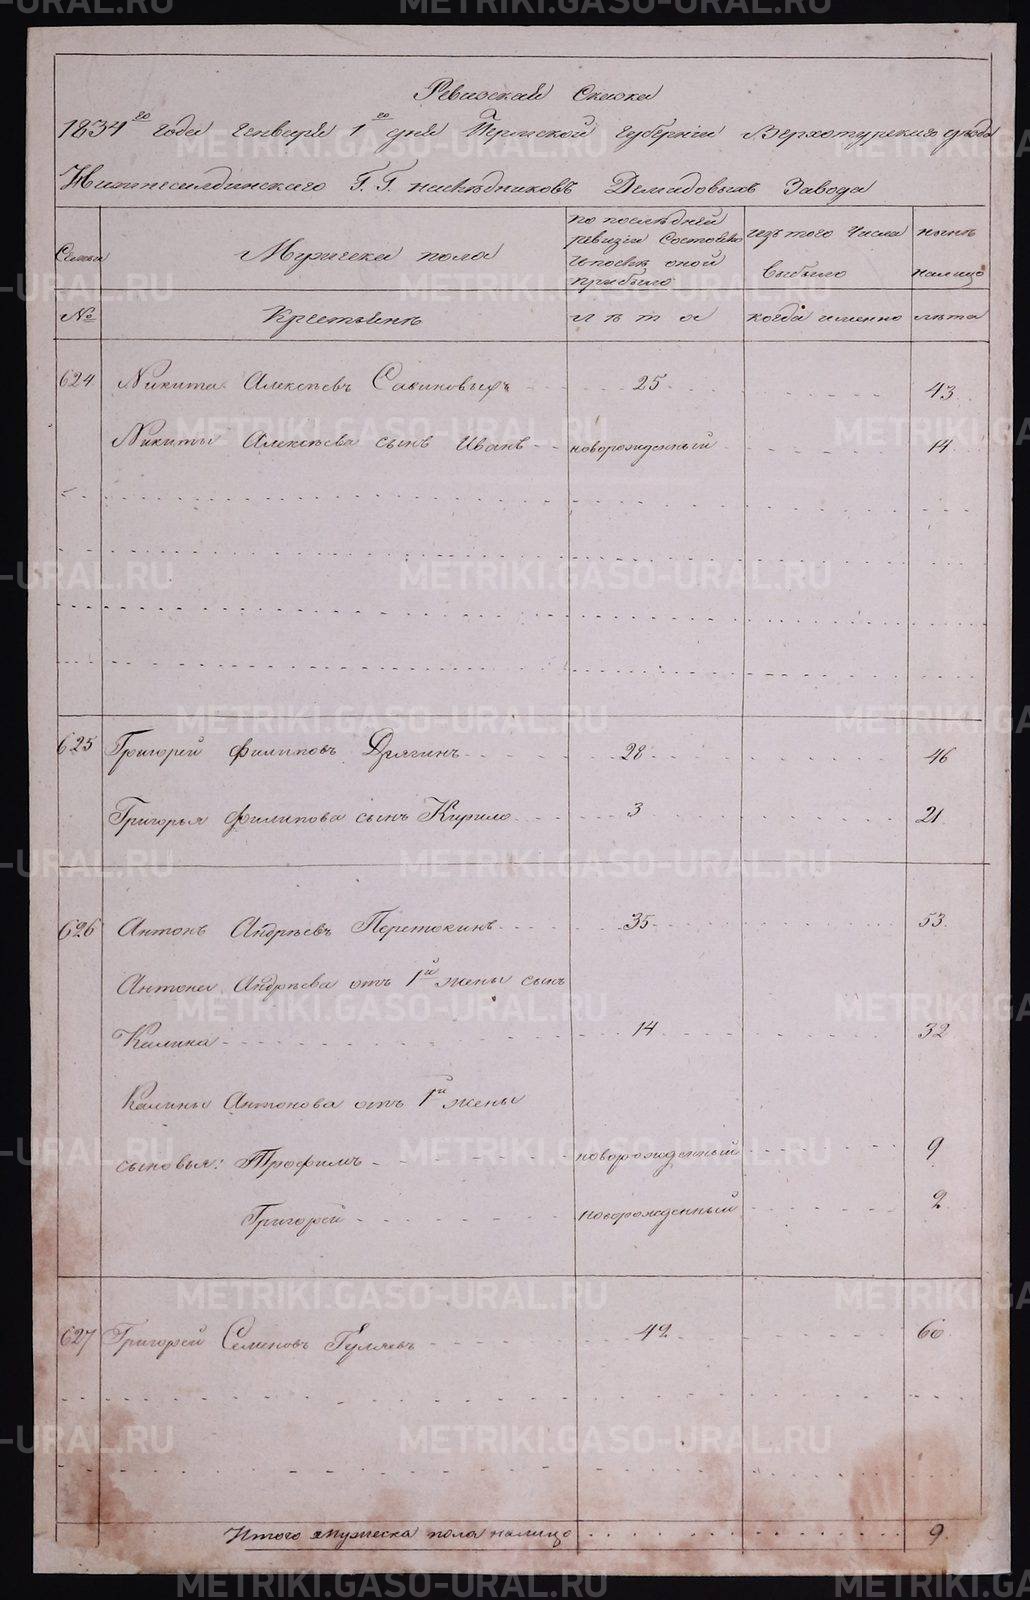 Ревизская Сказка
1834го года Генваря 1го дня Пермской губерніи Верхотурскаго уѣзда
Нижнесалдинскаго Г. Г. наслѣдниковъ Демидовыхъ Завода
Семьи Мужеска пола по послѣдней ревизіи Состояло и послѣ оной прибыло изъ того Числа выбыло нынѣ на лицо
№ Крестьянъ лѣта когда именно лѣта
624 Никита Алексѣевъ Савиновыхъ 25 43
Никиты Алексѣева сынъ Иванъ новорожденный 14
625 Григорей Филиповъ Дрягинъ 28 46
Григорья Филипова сынъ Кирило 3 21
626 Антонъ Андрѣевъ Перетокинъ 35 53
Антона Андрѣева отъ 1й жены сынъ
Калина 14 32
Калины Антонова отъ 1й жены
сыновья: Трофимъ новорожденный 9
Григорей новорожденный 2
627 Григорей Семеновъ Гуляевъ 42 60
Итого мужеска пола на лицо 9
METRIKI.GASO-URAL.RU